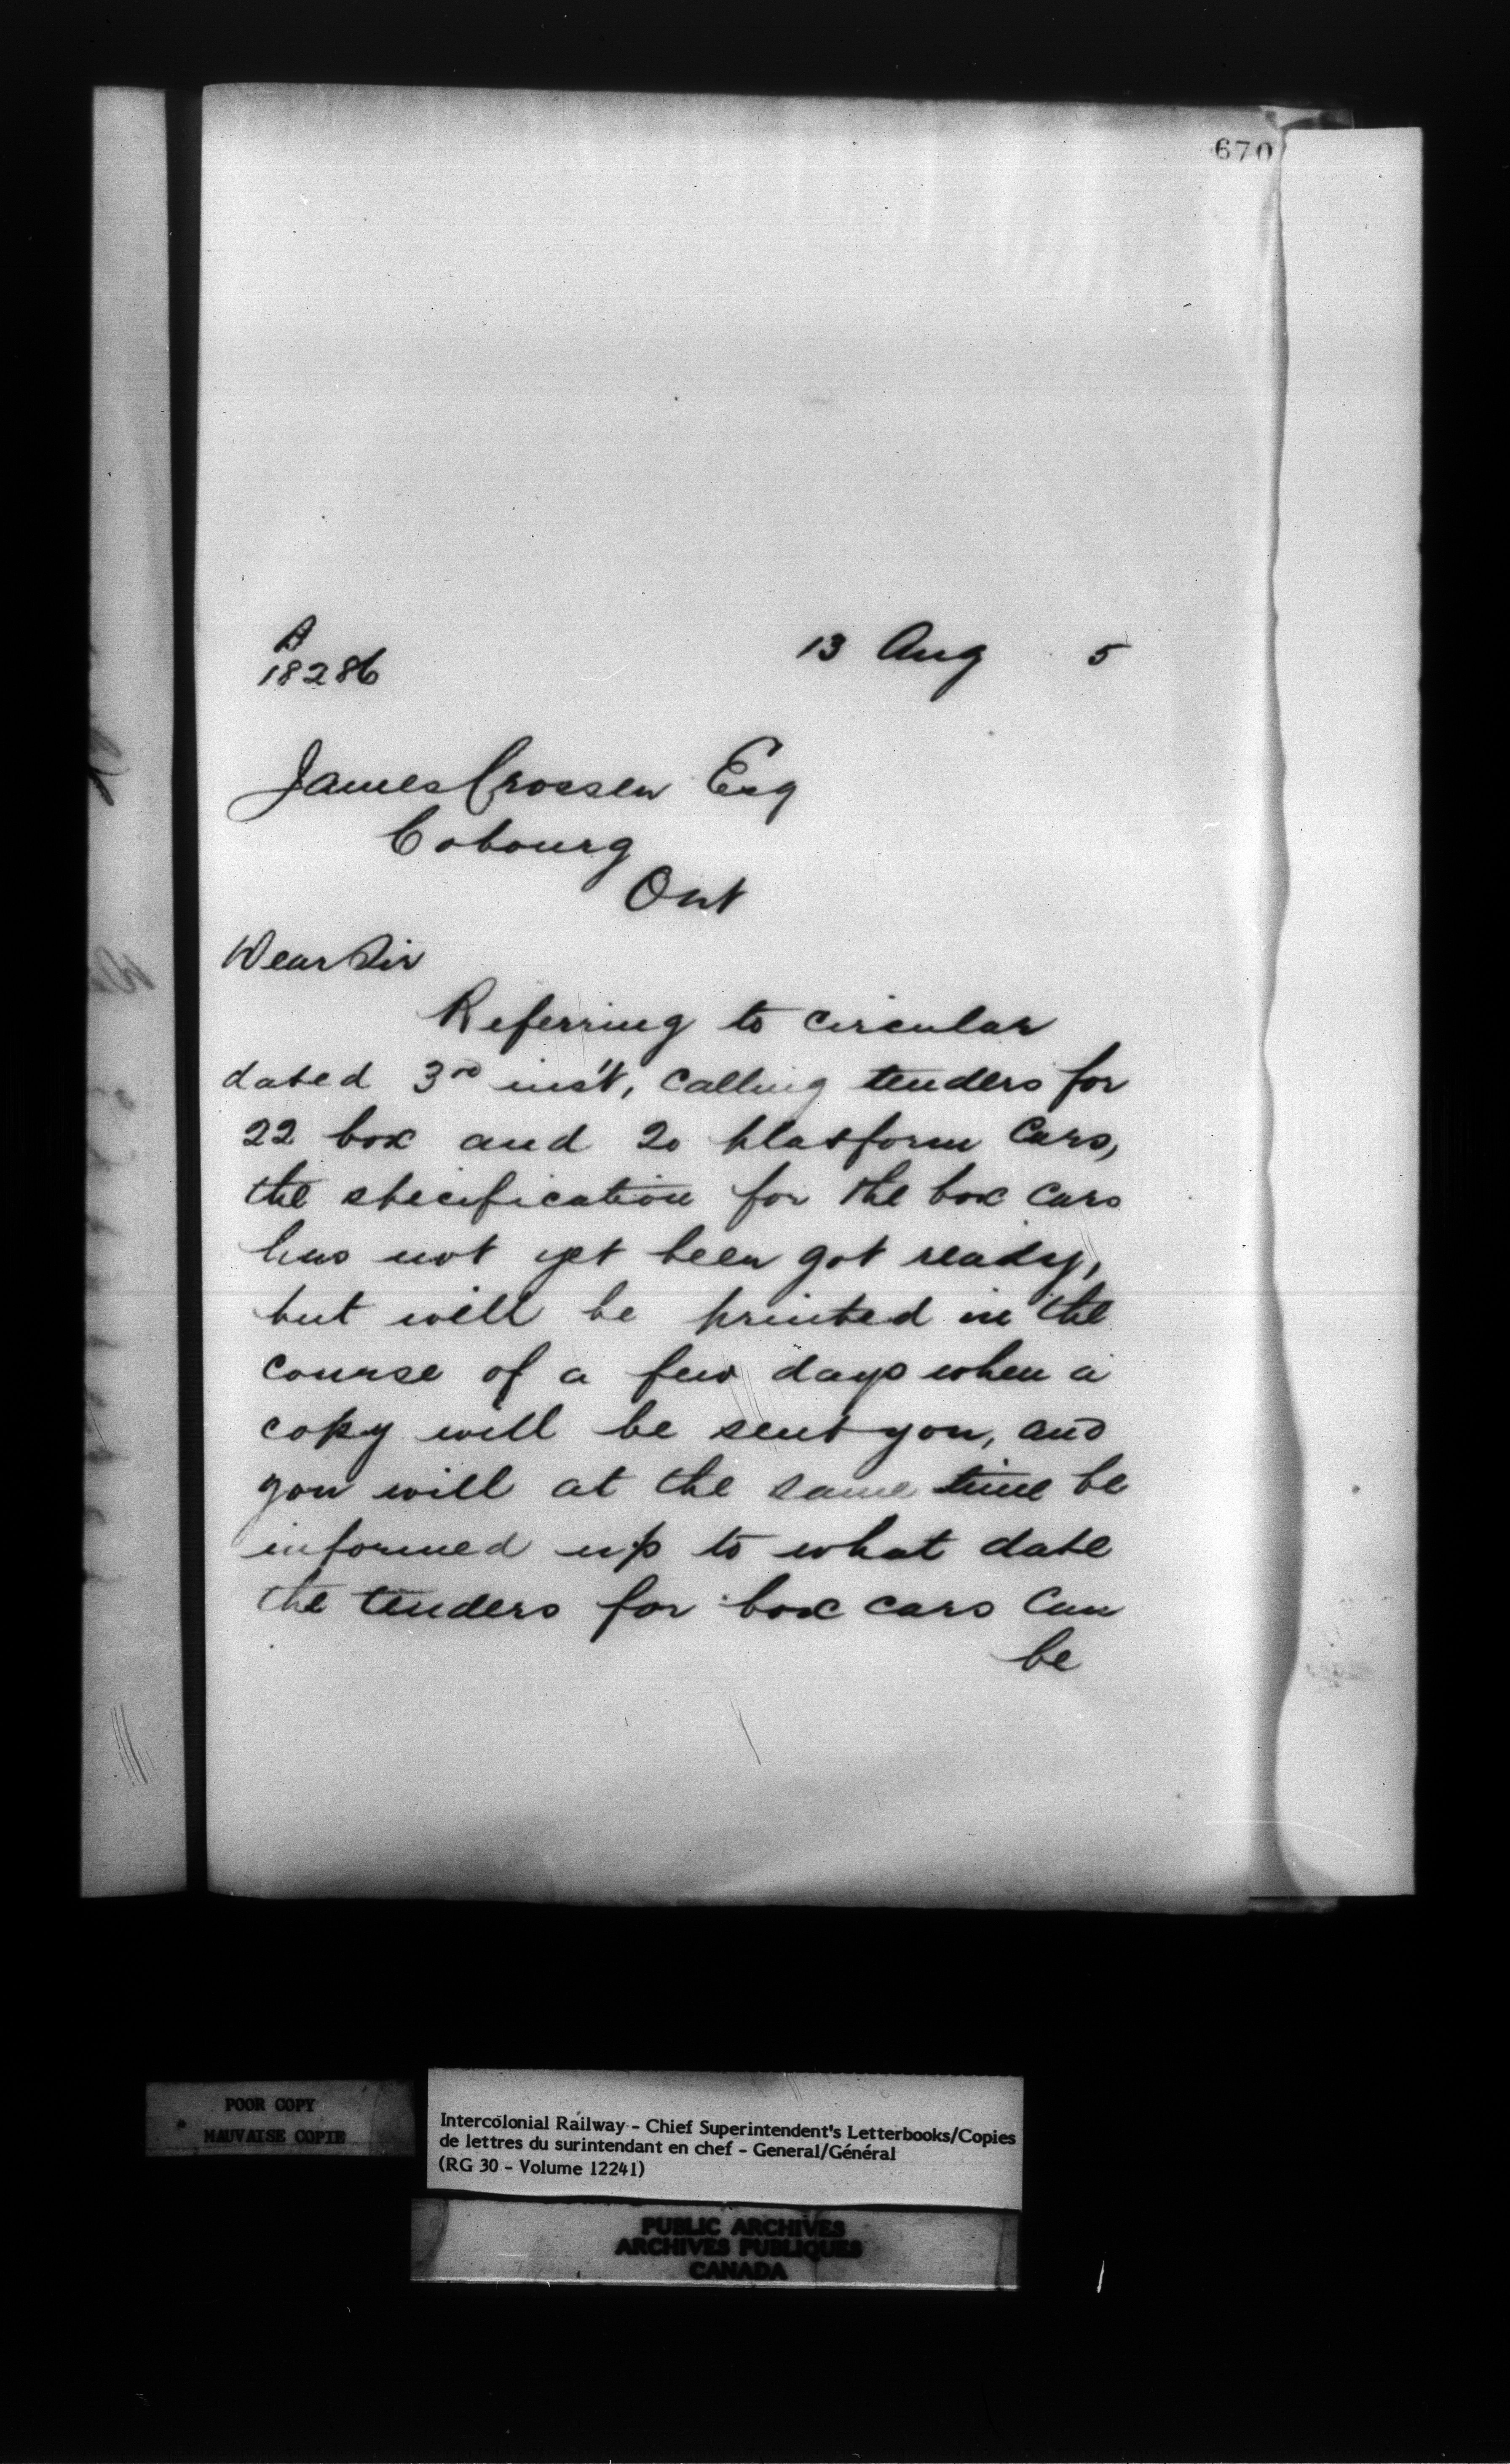 670
A
18286
13 Aug 5
James Crossen Esq
Cobourg
Ont
Dear Sir
Referring to circular
dated 3rd ins't, calling tenders for
22 box and 20 platform cars,
the specification for the box cars
has not yet been got ready,
but will be printed in the
course of a few days when a
copy will be sent you, and
you will at the same time be
informed up to what date
the tenders for box cars can
be
POOR COPY
MAUVAISE COPIE
Intercolonial Railway - Chief Superintendent's Letterbooks/Copies
de lettres du surintendant en chef - General/Général
(RG 30 - Volume 12241)
PUBLIC ARCHIVES
ARCHIVES PUBLIQUES
CANADA